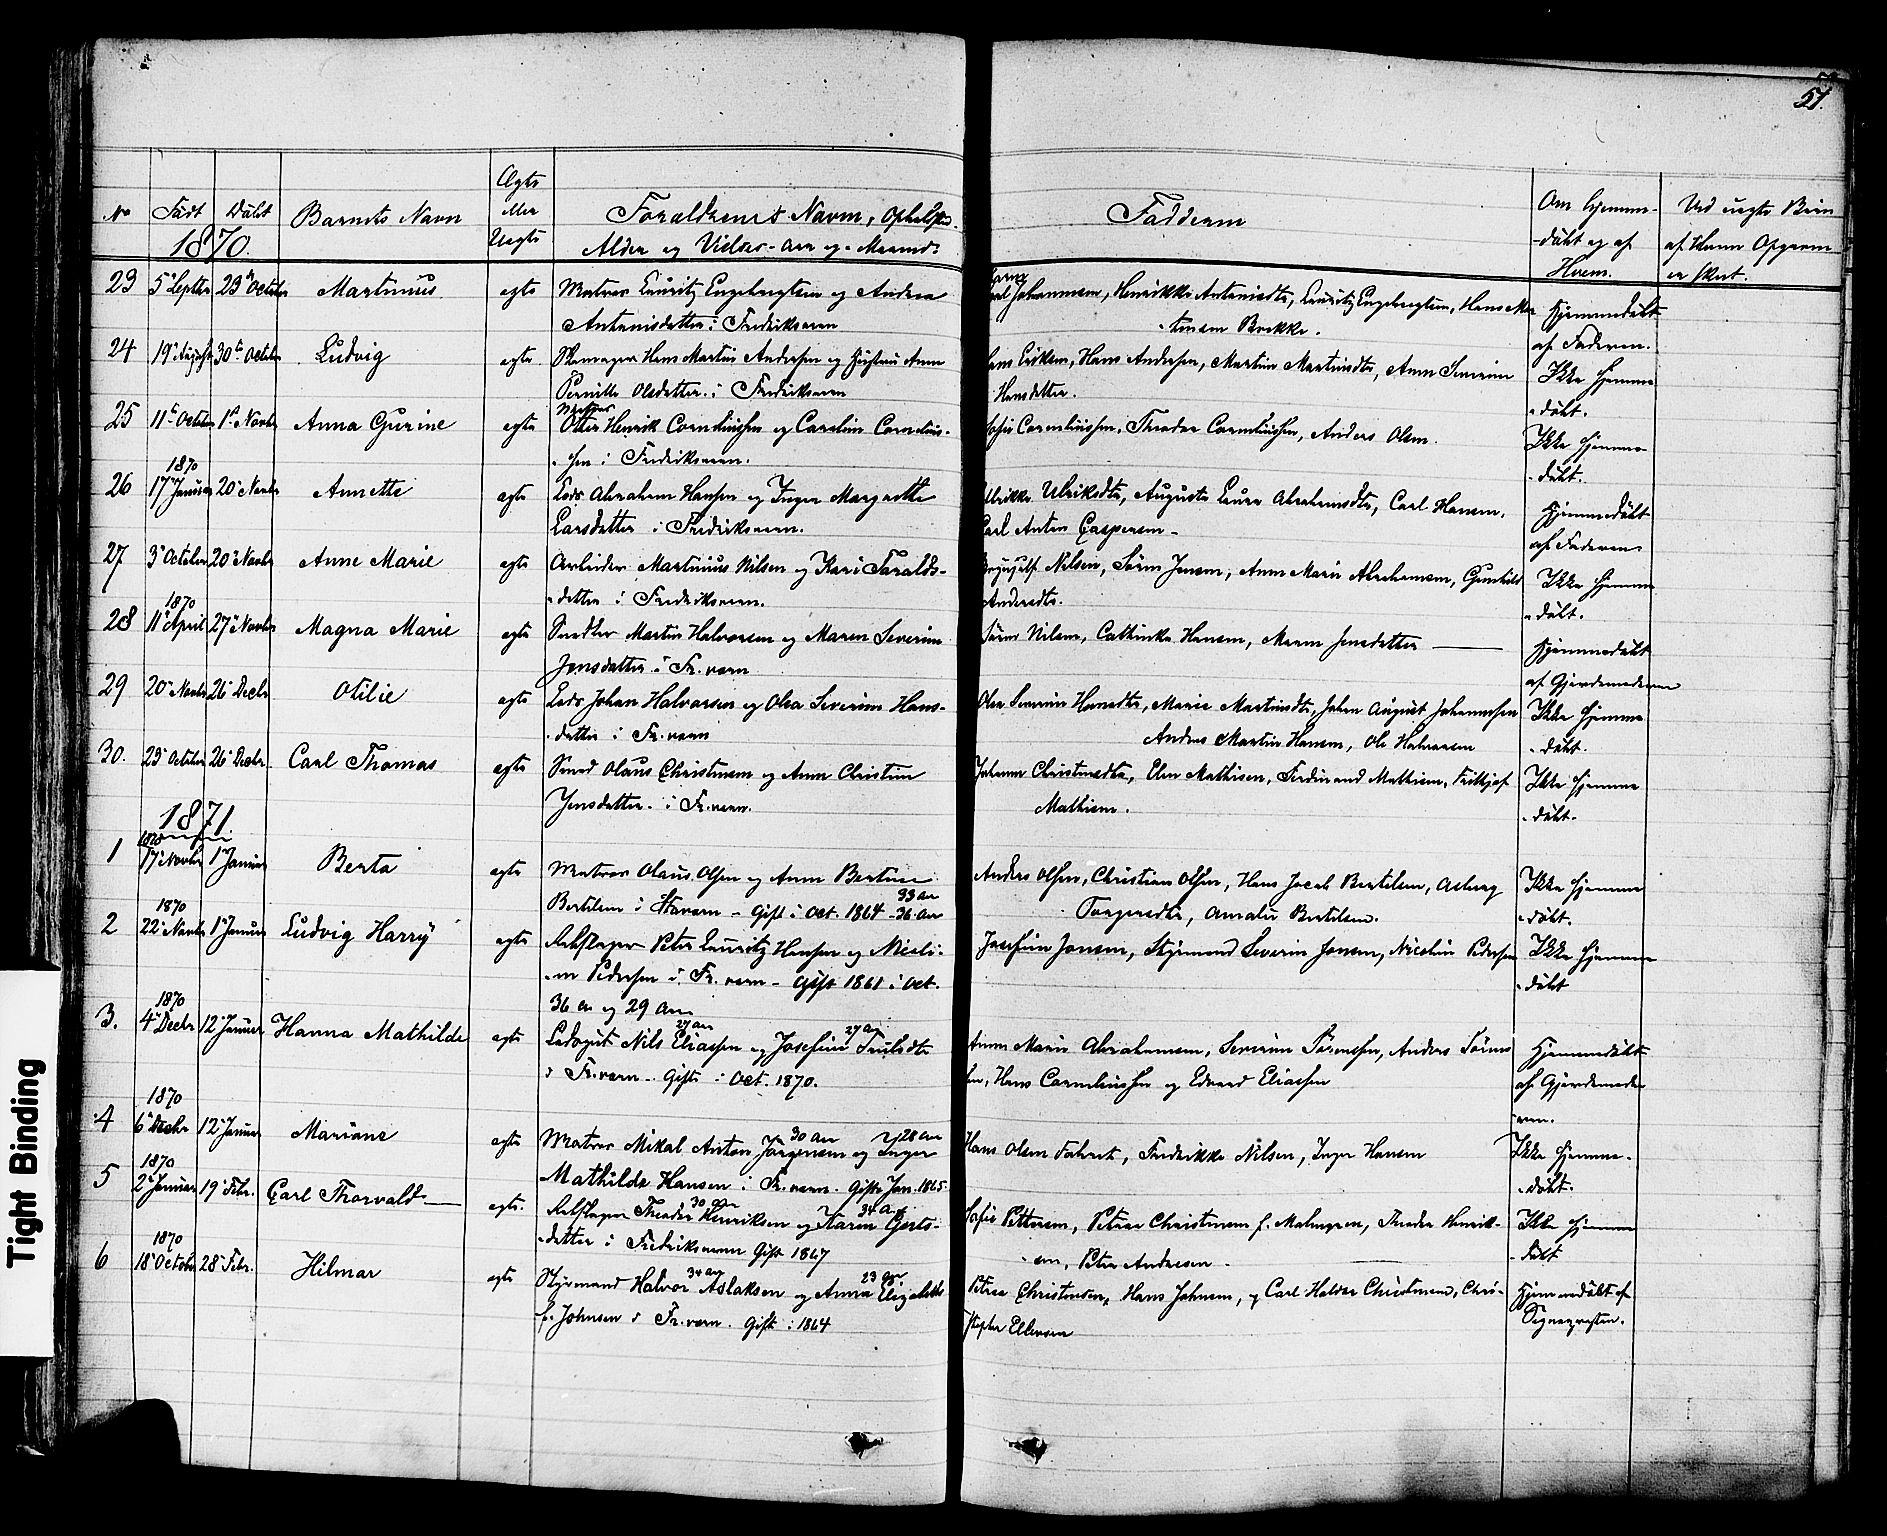 57.
No Födt Döbt Barnets Navn Ægte eller Uegte Forældrenes Navn, Opholdst. Alder og Vielses-Aar og Maaned. Fadderne Om hjemmedöbt og af Hvem. Ved uegte Börn af Hvem Opgaven er skeet.
1870.
23 5' Septbr 23de October Martinius egte Matros Lauritz Engebregtsen og Andrea
Antonisdatter i Fredriksværn
Johannesen, Henrikke Antonisdtr, Lauritz Engebregtsen, Hans Mor
-tensen Brekke. Hjemmedöbt
af Faderen.
24 19' August 30te October Ludvig egte Hans Martin Andersen og Hustru Anne
Pernille Olsdatter i Fredriksværn
Eriksen, Hans Andersen, Martin Martinsdtr, Anne Severine
Hansdatter. Ikke hjemme
-döbt.
25 11te October 1ste Novbr Anna Gurine egte Matros
Otter Henrik Corneliussen og Caroline Cornelius-
-sen i Fredriksværn.
Sofie Corneliussen, Theodor Corneliussen, Anders Olsen. Ikke hjemme-
-döbt.
1870
26 17' Januar 20' Novbr Annette egte Lods Abraham Hansen og Inger Margrethe
Larsdatter i Fredriksværn.
Ulrikke Ulriksdtr, Augusta Laura Abrahamsdtr, Carl Hansen,
Carl Anton Caspersen - Hjemmedöbt
af Faderen
27 3' October 20' Novbr Anne Marie egte Arbeider Martinius Nilsen og Kari Taralds-
-datter i Fredriksværn.
Nilsen, Sören Jensen, Anne Marie Abrahamsen, Gunhild
Andersdtr. Ikke hjemme
-döbt.
1870
28 11' April 27' Novbr Magna Marie egte Snedker Martin Halvorsen og Maren Severine
Jensdatter i Fr.værn
Sören Nilsen, Cathinka Hansen, Maren Jensdatter Hjemmedöbt
af Gjordemoderen
29 20' Novbr 26' Decbr Otilie egte Lods Johan Halvorsen og Olea Severine Hans-
-datter i Fr.værn
Olea Severine Hansdtr, Marie Martinsdtr, Johan August Johannesen
Anders Martin Hansen, Ole Halvorsen Ikke hjemme
-döbt.
30. 23' October 26' Decbr Carl Thomas egte Smed Olaus Christensen og Anne Christine
Jensdatter i Fr.værn.
Johanne Christensdtr, Elen Mathisen, Ferdinand Mathisen, Frithjof
Mathisen. Ikke hjemme
-döbt.
1871
1870
1 17' Novbr 1' Januar Berta egte Matros Olaus Olsen og Anne Bertine
Bertelsen i Stavern - Gift i Oct. 1864 - 33 aar 36 aar
Anders Olsen, Christian Olsen, Hans Jacob Bertelsen, Asberg
Torgersdtr, Amalie Bertelsen. Ikke hjemme
-döbt.
1870
2 22' Novbr 1' Januar Ludvig Harry egte Rebslager Peter Lauritz Hansen og Nicoli-
-ne Pedersen i Fr.værn - Gift 1861 i Oct.
36 a og 29 aar
Josefine Jonsen, Styrmand Severin Jonsen, Nicoline Pedersen Ikke hjemme
-döbt
1870
3. 4' Decbr 12' Januar Hanna Mathilde egte 27 aar 27 aar
Nils Eliassen og Josefine Trulsdtr
i Fr.værn - Gifte i Oct. 1870.
Anne Marie Abrahamsen, Severine Sörenssen, Anders Sörens
sen, Hans Corneliussen og Edvard Eliassen Hjemmedöbt
af Gjordemode-
ren.
1870
4 6' Decbr 12' Januar Mariane egte 30 aar 28 aar
Matros Mikal Anton Jörgensen og Inger
Mathilde Hansen i Fr.værn. Gifte Jan. 1865
Hans Olsen, Fredrikke Nilsen, Inger Hansen Ikke hjemme-
-döbt.
1870
5 2' Januar 19' Febr. Carl Thorvald egte. 30 aar 34 aar
Rebslager Theodor Henriksen og Karen Gjerts-
-datter i Fredriksværn Gift 1867
Sofie Pettersen, Petrea Christensen f. Malmgren, Theodor Henrik-
-sen, Peter Andresen - Ikke hjemme
-döbt
1870
6 18' October 28' Febr. Hilmar egte 34 aar 23 aar
Styrmand Halvor Aslaksen og Anna Elisabeth
f. Johnsen i Fr.værn. Gift i 1864
Petrea Christensen, Hans Johnsen, og Carl Halvor Christensen, Chri-
stopher Ellevsen Hjemmedöbt af
Sognepresten.
Tight Binding